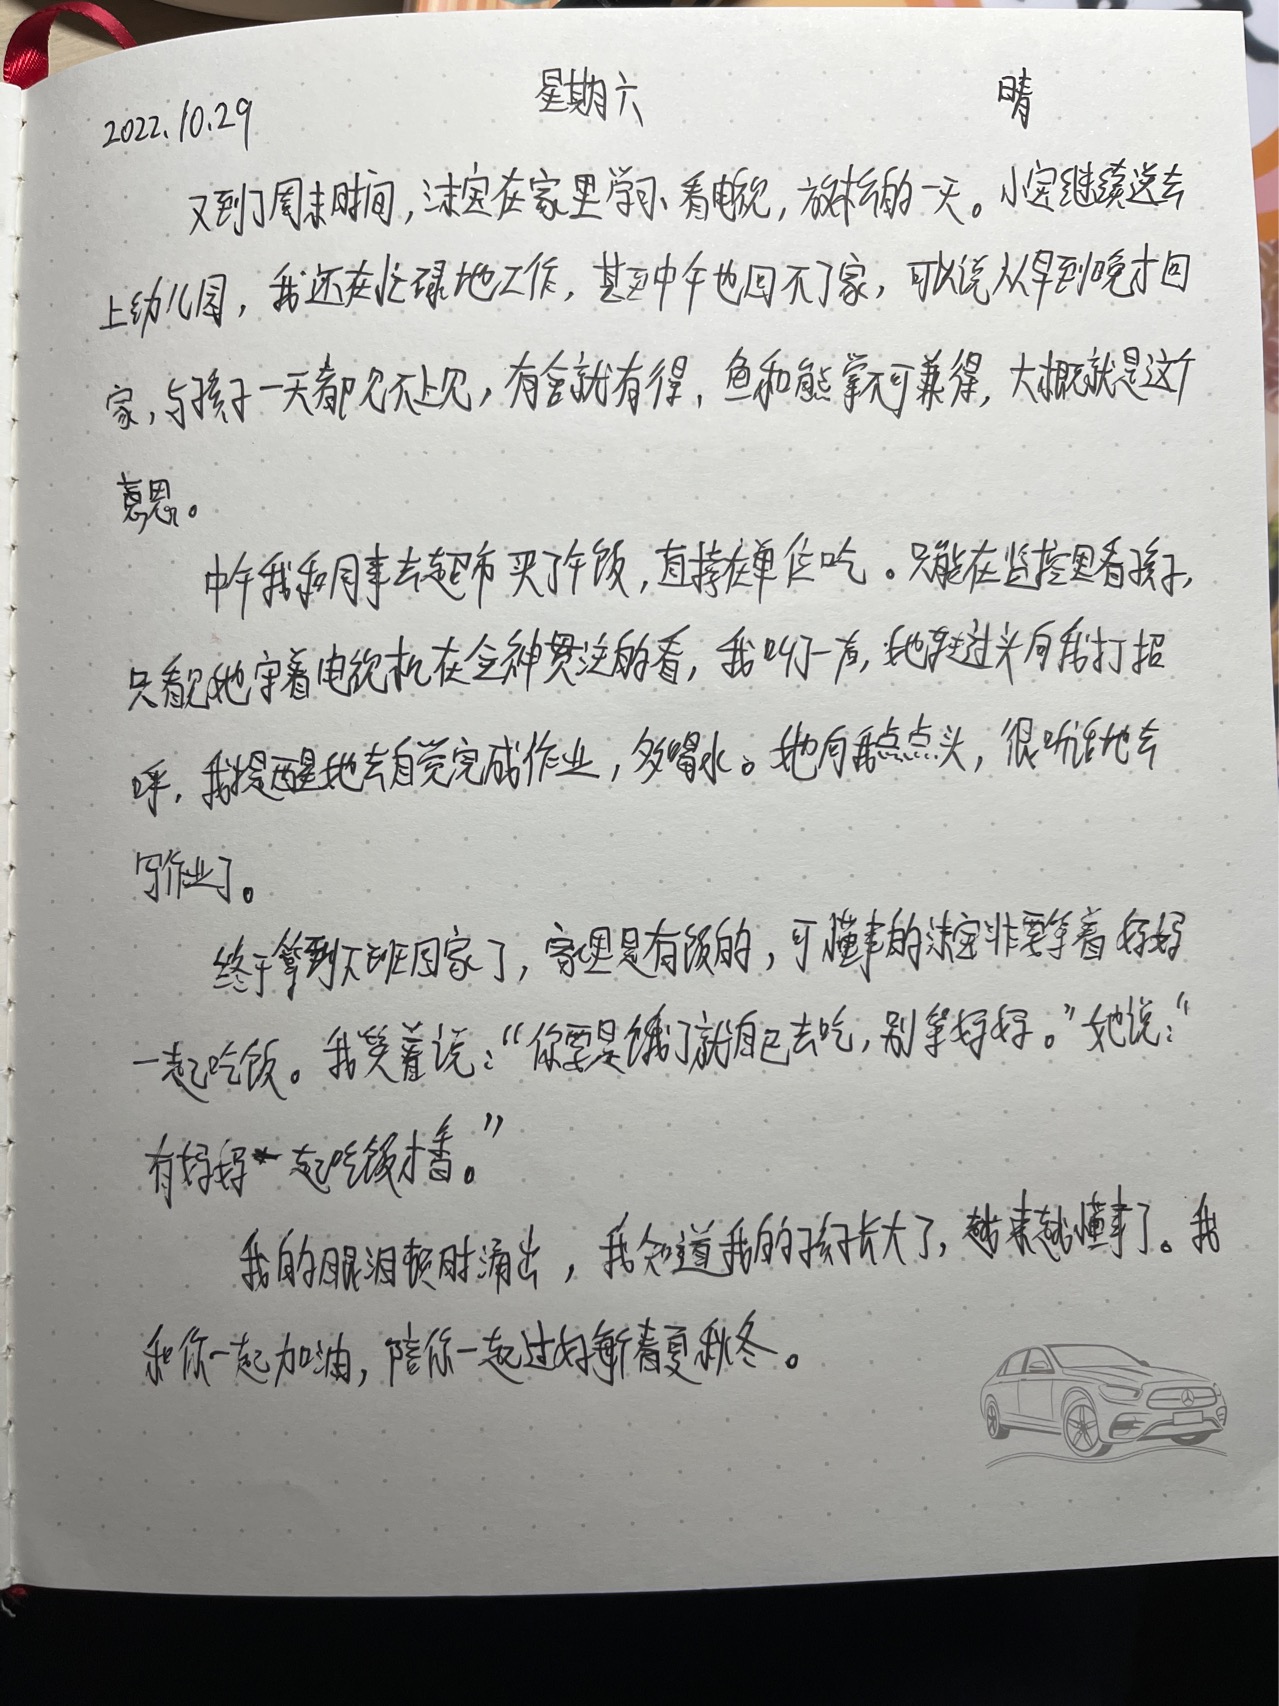 2022.10.29 星期六 晴
又到了周末时间，沫宝在家里学习、看电视，放松的一天。小宝继续送去
上幼儿园，我还在忙碌地工作，甚至中午也回不了家，可以说从早到晚才回
家，与孩子一天都见不上见，有舍就有得，鱼和熊掌不可兼得，大概就是这个
意思。
中午我和同事去超市买了午饭，直接在单位吃。只能在监控里看孩子，
只看见她守着电视机在全神贯注的看，我叫了一声，她转过头向我打招
呼，我提醒她去自觉完成作业，多喝水。她向我点点头，很听话地去
写作业了。
终于等到下班回家了，家里是有饭的，可懂事的沫宝非要等着妈妈
一起吃饭。我笑着说：“你要是饿了就自己去吃，别等妈妈。”她说：“
有妈妈一起吃饭才香。”
我的眼泪顿时涌出，我知道我的孩子长大了，越来越懂事了。我
和你一起加油，陪你一起过好每个春夏秋冬。